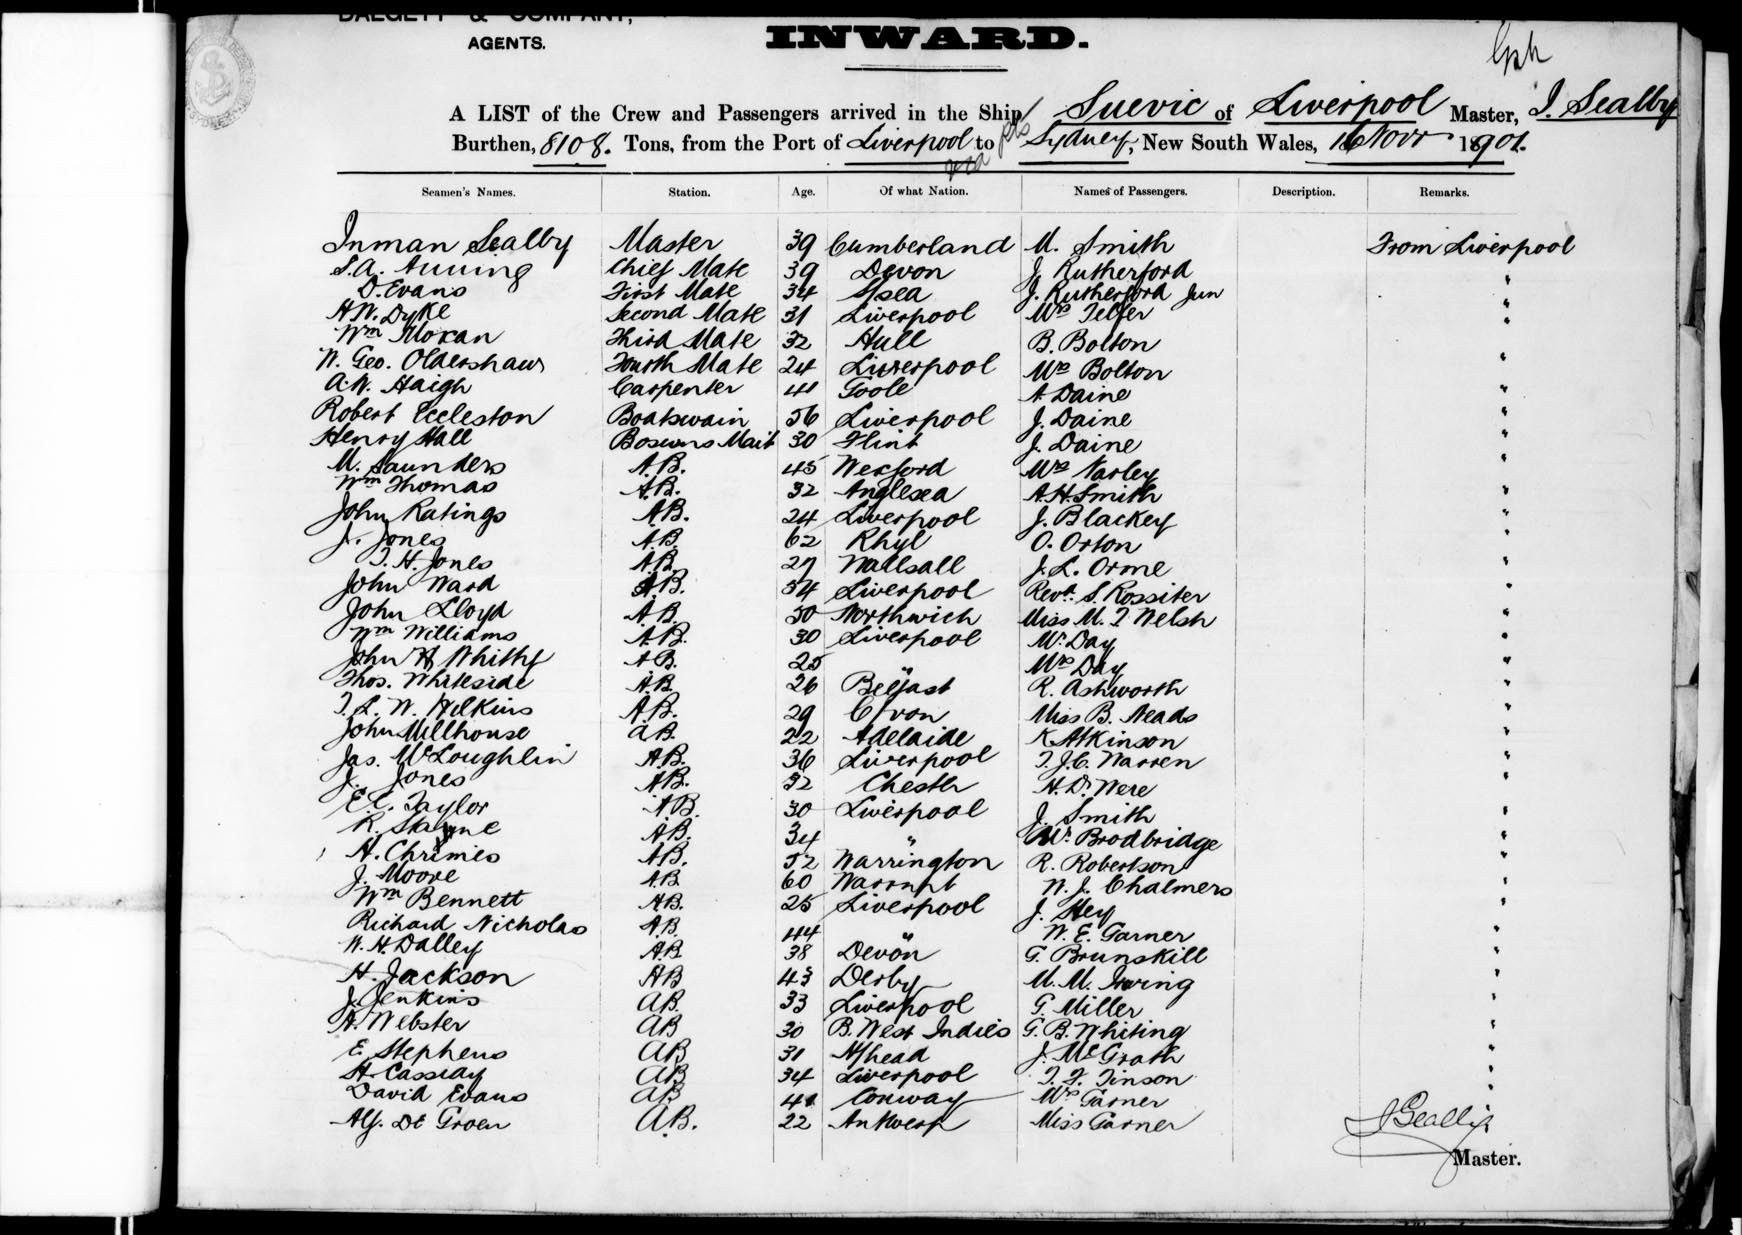 DALGETY & COMPANY,
AGENTS.
INWARD.
A LIST of the Crew and Passengers arrived in the Ship Suevic of Liverpool Master, I. Sealby
Burthen, 8108. Tons, from the Port of Liverpool to Sydney, New South Wales, 16 Novr 1901.
Seamen's Names. Station. Age. Of what Nation. Names of Passengers. Description. Remarks.
Inman Sealby Master 39 Cumberland M. Smith From Liverpool
S.A. Chief Mate 39 Devon J. Rutherford "
D. Evans First Mate 34 J. Rutherford Jun "
H.W. Dyke Second Mate 31 Liverpool Mrs Telfer "
Wm Moran Third Mate 32 Hull B. Bolton
W. Geo. Oldershaw Fourth Mate 24 Liverpool Mrs Bolton "
A.W. Haigh Carpenter 41 Goole A Daine "
Robert Eccleston Boatswain 56 Liverpool J. Daine "
Henry Hall Bosuns Mait 30 Flint J. Daine "
M. Saunders A.B. 45 Wexford Mrs Varley "
Wm Thomas A.B. 32 Anglesea A.H. Smith "
John Ratings A.B. 24 Liverpool J. Blackey "
J. Jones A.B. 62 Rhyl O. Orton "
T. H. Jones A.B. 27 Wallsall J. L. Orme "
John Ward A.B. 34 Liverpool Revd. S. Rossiter "
John Lloyd A.B. 50 Northwich Miss M. T Welsh "
Wm Williams A.B. 30 Liverpool Mr. Day "
John H Whitby A.B. 25 " Mrs Day "
Thos. Whiteside A.B. 26 Belfast R. Ashworth "
T. L. W. Wilkins A.B. 29 Miss B. Neads "
John Millhouse A.B. 22 Adelaide K Atkinson "
Jas. McLoughlin A.B. 36 Liverpool T. J. C. Warren "
J. Jones A.B. 32 Chester H. D. Were "
E. E. Taylor A.B. 30 Liverpool J. Smith "
R. A.B. 34 " Mr. Brodbridge "
H. Chrimes A.B. 52 Warrington R. Robertson "
J. Moore A.B. 60 W. J. Chalmers "
Wm Bennett A.B. 25 Liverpool J. Hey "
Richard Nicholas A.B. 44 " W. E. Garner "
W. H. Dalley A.B. 38 Devon G. Brunskill "
H. Jackson A B 43 Derby M. M. Irwing "
J. Jenkins A.B. 33 Liverpool G. Miller "
A. Webster AB 30 B. West Indies G. B. Whiting "
E. Stephens AB 31 J. McGrath "
H. Cassidy AB 34 Liverpool T. F. Tinson "
David Evans AB 41 Conway Mrs Garner "
Alf. De Groen A.B. 22 Antwerp Miss Garner "
I Sealby
Master.